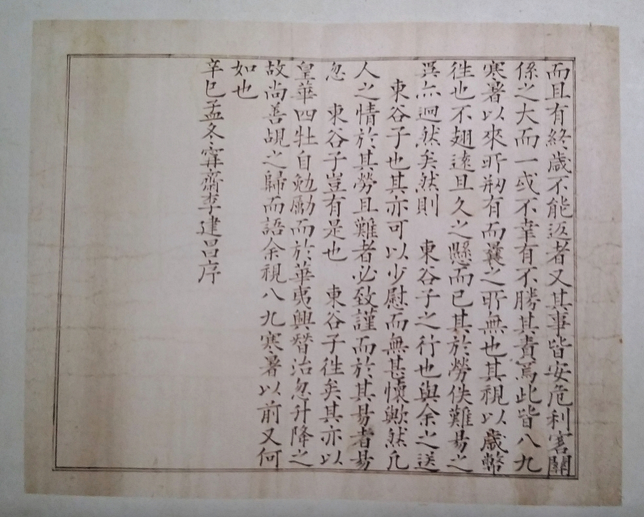 而且有終歲不能返者又其事皆安危利害關
係之大而一或不幸有不勝其責焉此皆八九
寒暑以來所刱有而曩之所無也其視以歲幣
徃也不翅遠且久之懸而已其於勞佚難易之
異亦逈然矣然則 東谷子之行也與余之送
東谷子也其亦可以少慰而無甚懷歟然凡
人之情於其勞且難者必致謹而於其易者易
忽 東谷子豈有是也 東谷子徃矣其亦以
皇華四牡自勉勵而於華夷興替治忽升降之
故尚善覘之歸而語余視八九寒暑以前又何
如也
辛巳孟冬寗齋李建昌序